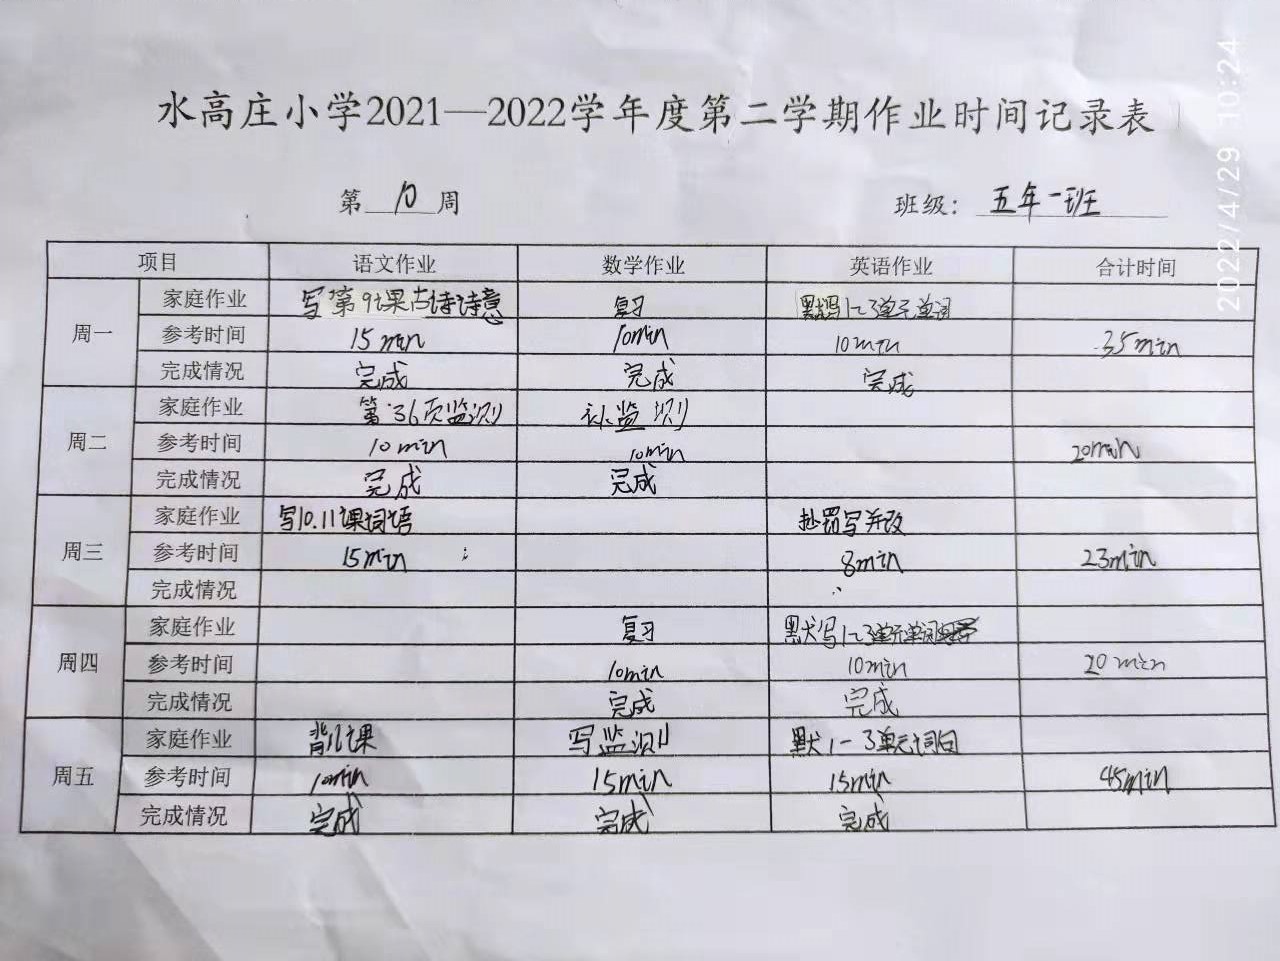 水高庄小学2021—2022学年度第二学期作业时间记录表
第 10 周 班级: 五年一班
项目 语文作业 数学作业 英语作业 合计时间
周一 家庭作业 写第9课古诗诗意 复习 默写1-3单元单词
参考时间 15min 10min 10min 35min
完成情况 完成 完成 完成
周二 家庭作业 第36页监测 监测
参考时间 10min 10min 20min
完成情况 完成 完成
周三 家庭作业 写10.11课词语 抄罚写并改
参考时间 15min 8min 23min
完成情况
周四 家庭作业 复习 默写1-3单元单词
参考时间 10min 10min 20min
完成情况 完成 完成
周五 家庭作业 背 课 写监测 默1-3单元词句
参考时间 10min 15min 15min 45min
完成情况 完成 完成 完成
2022/4/29 10:24